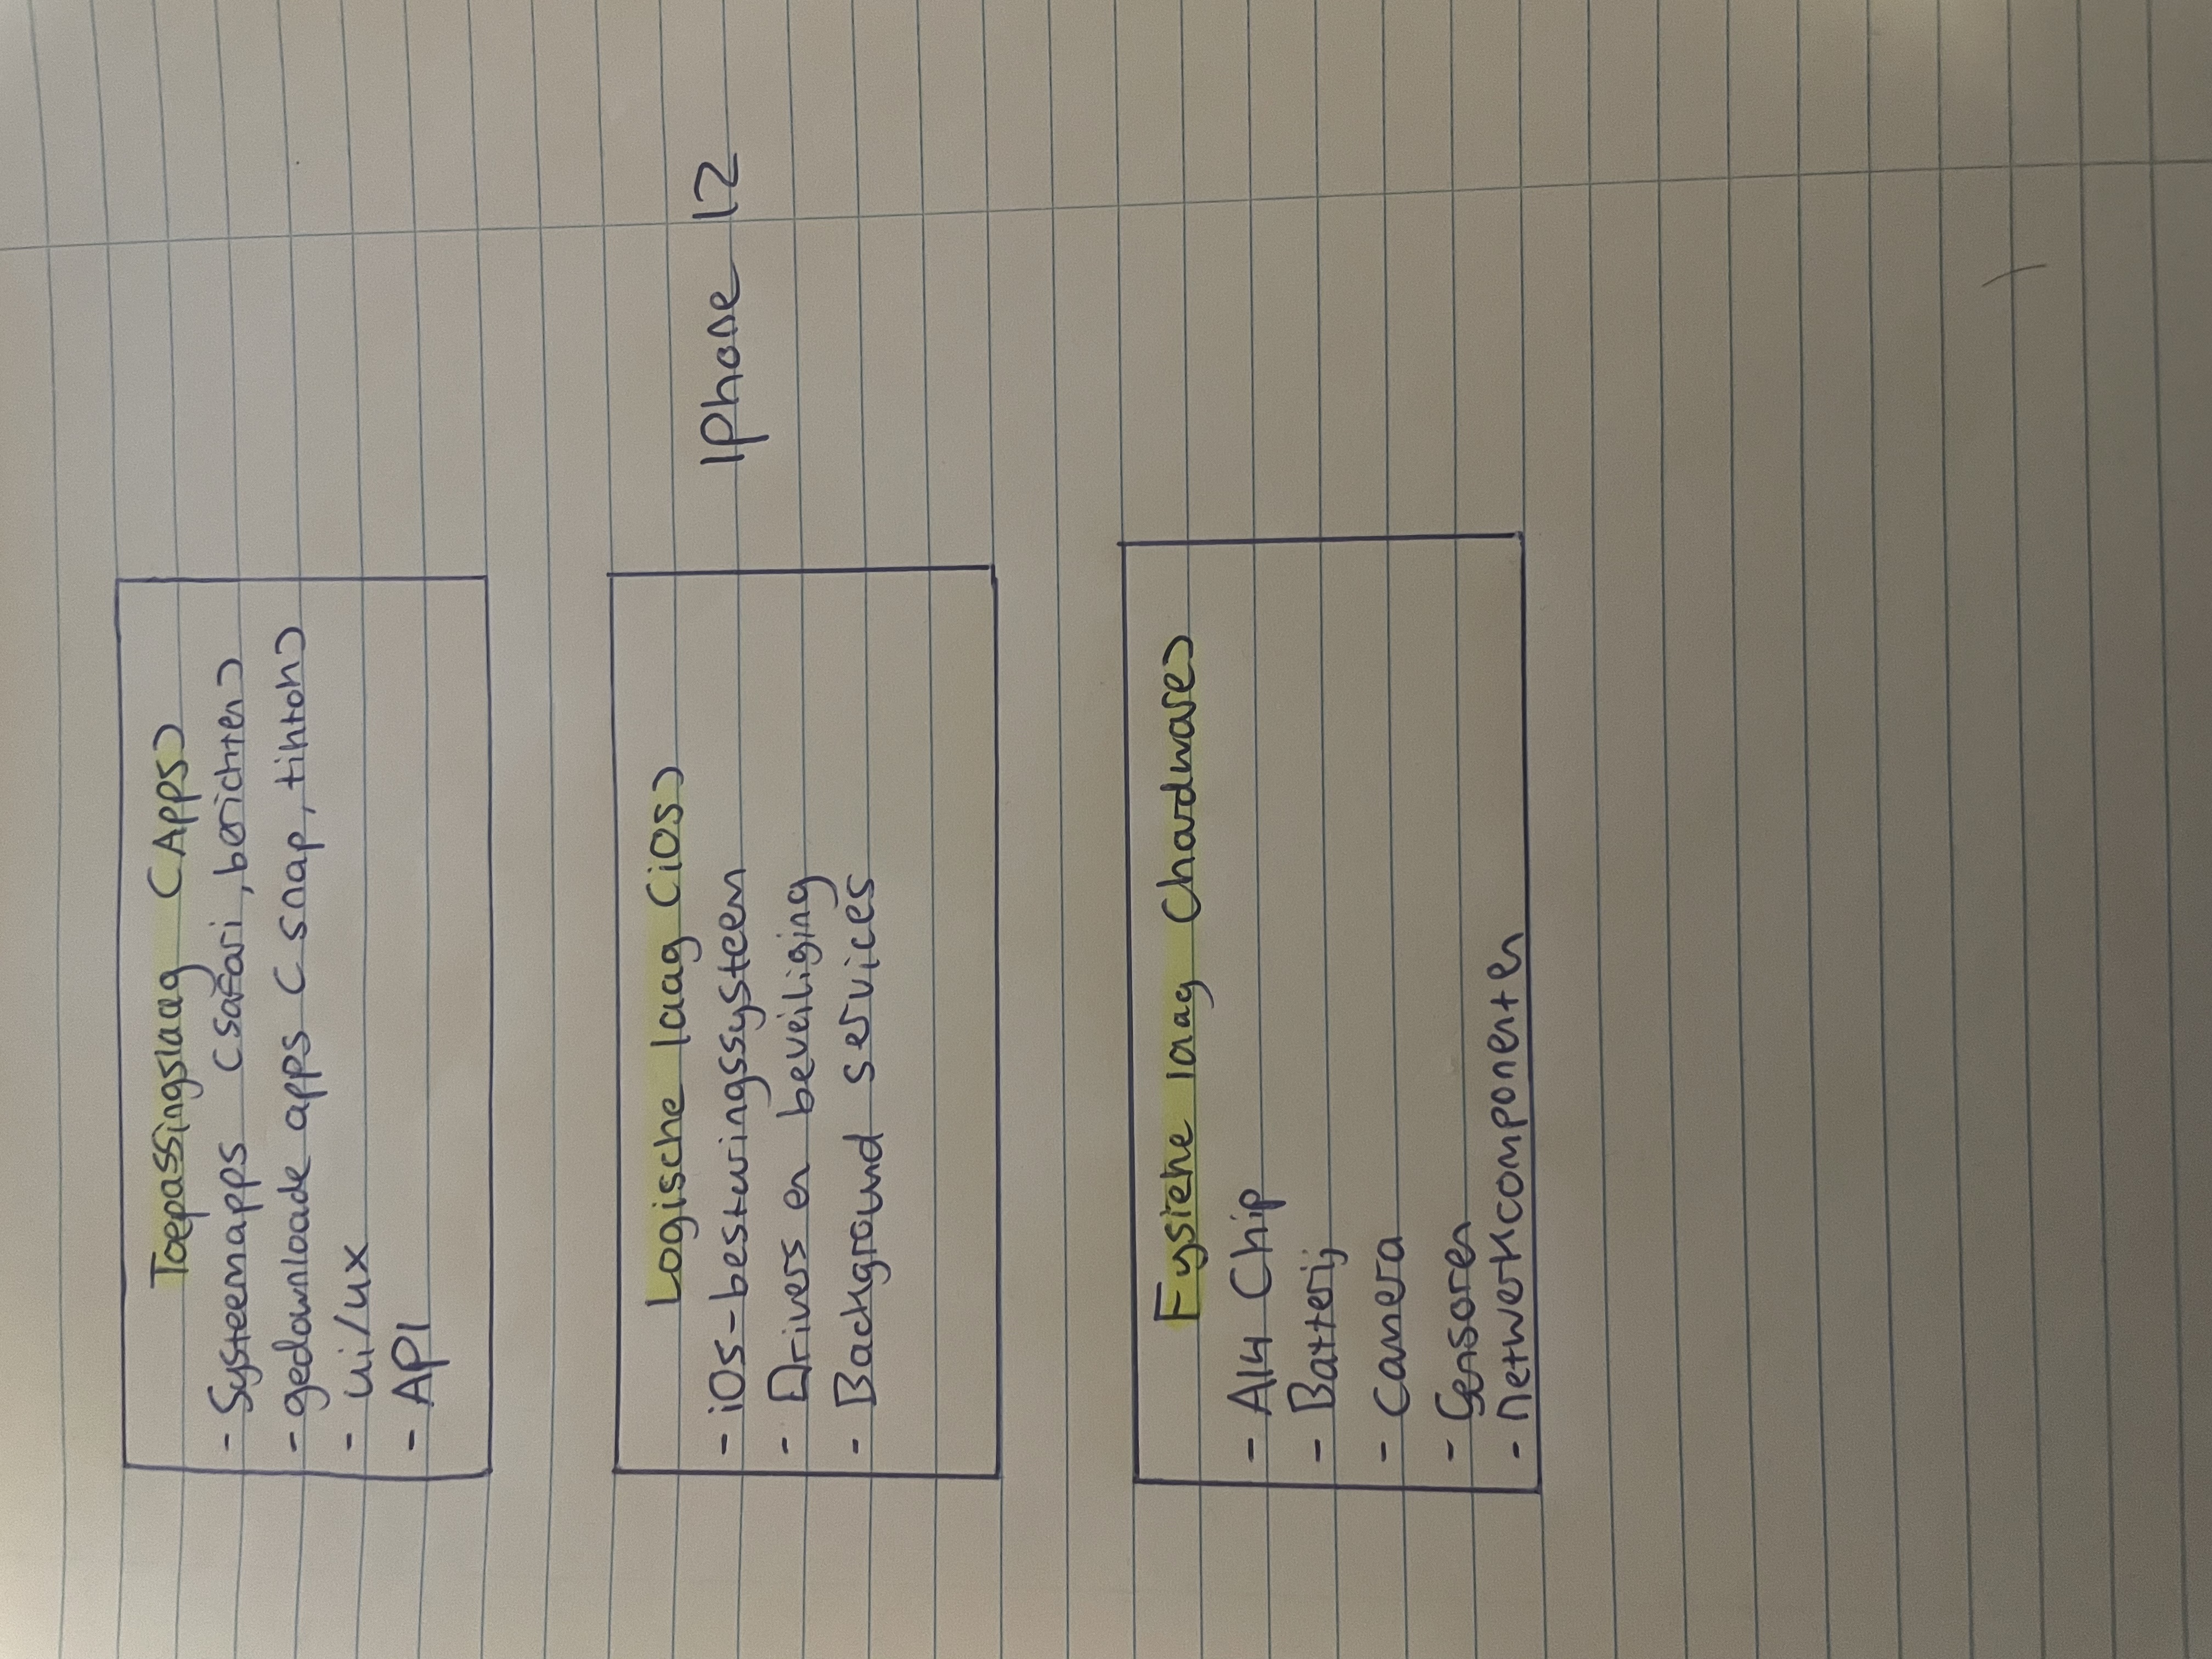 Toepassingslaag (Apps)
- Systeemapps (safari, berichten)
- gedownloade apps (snap, tiktok)
- ui/ux
- API
Logische laag (iOS)
- iOS-besturingssysteem
- Drivers en beveiliging
- Background services
IPhone 12
Fysieke laag (hardware)
- A14 Chip
- Batterij
- Camera
- Sensoren
- netwerkcomponenten